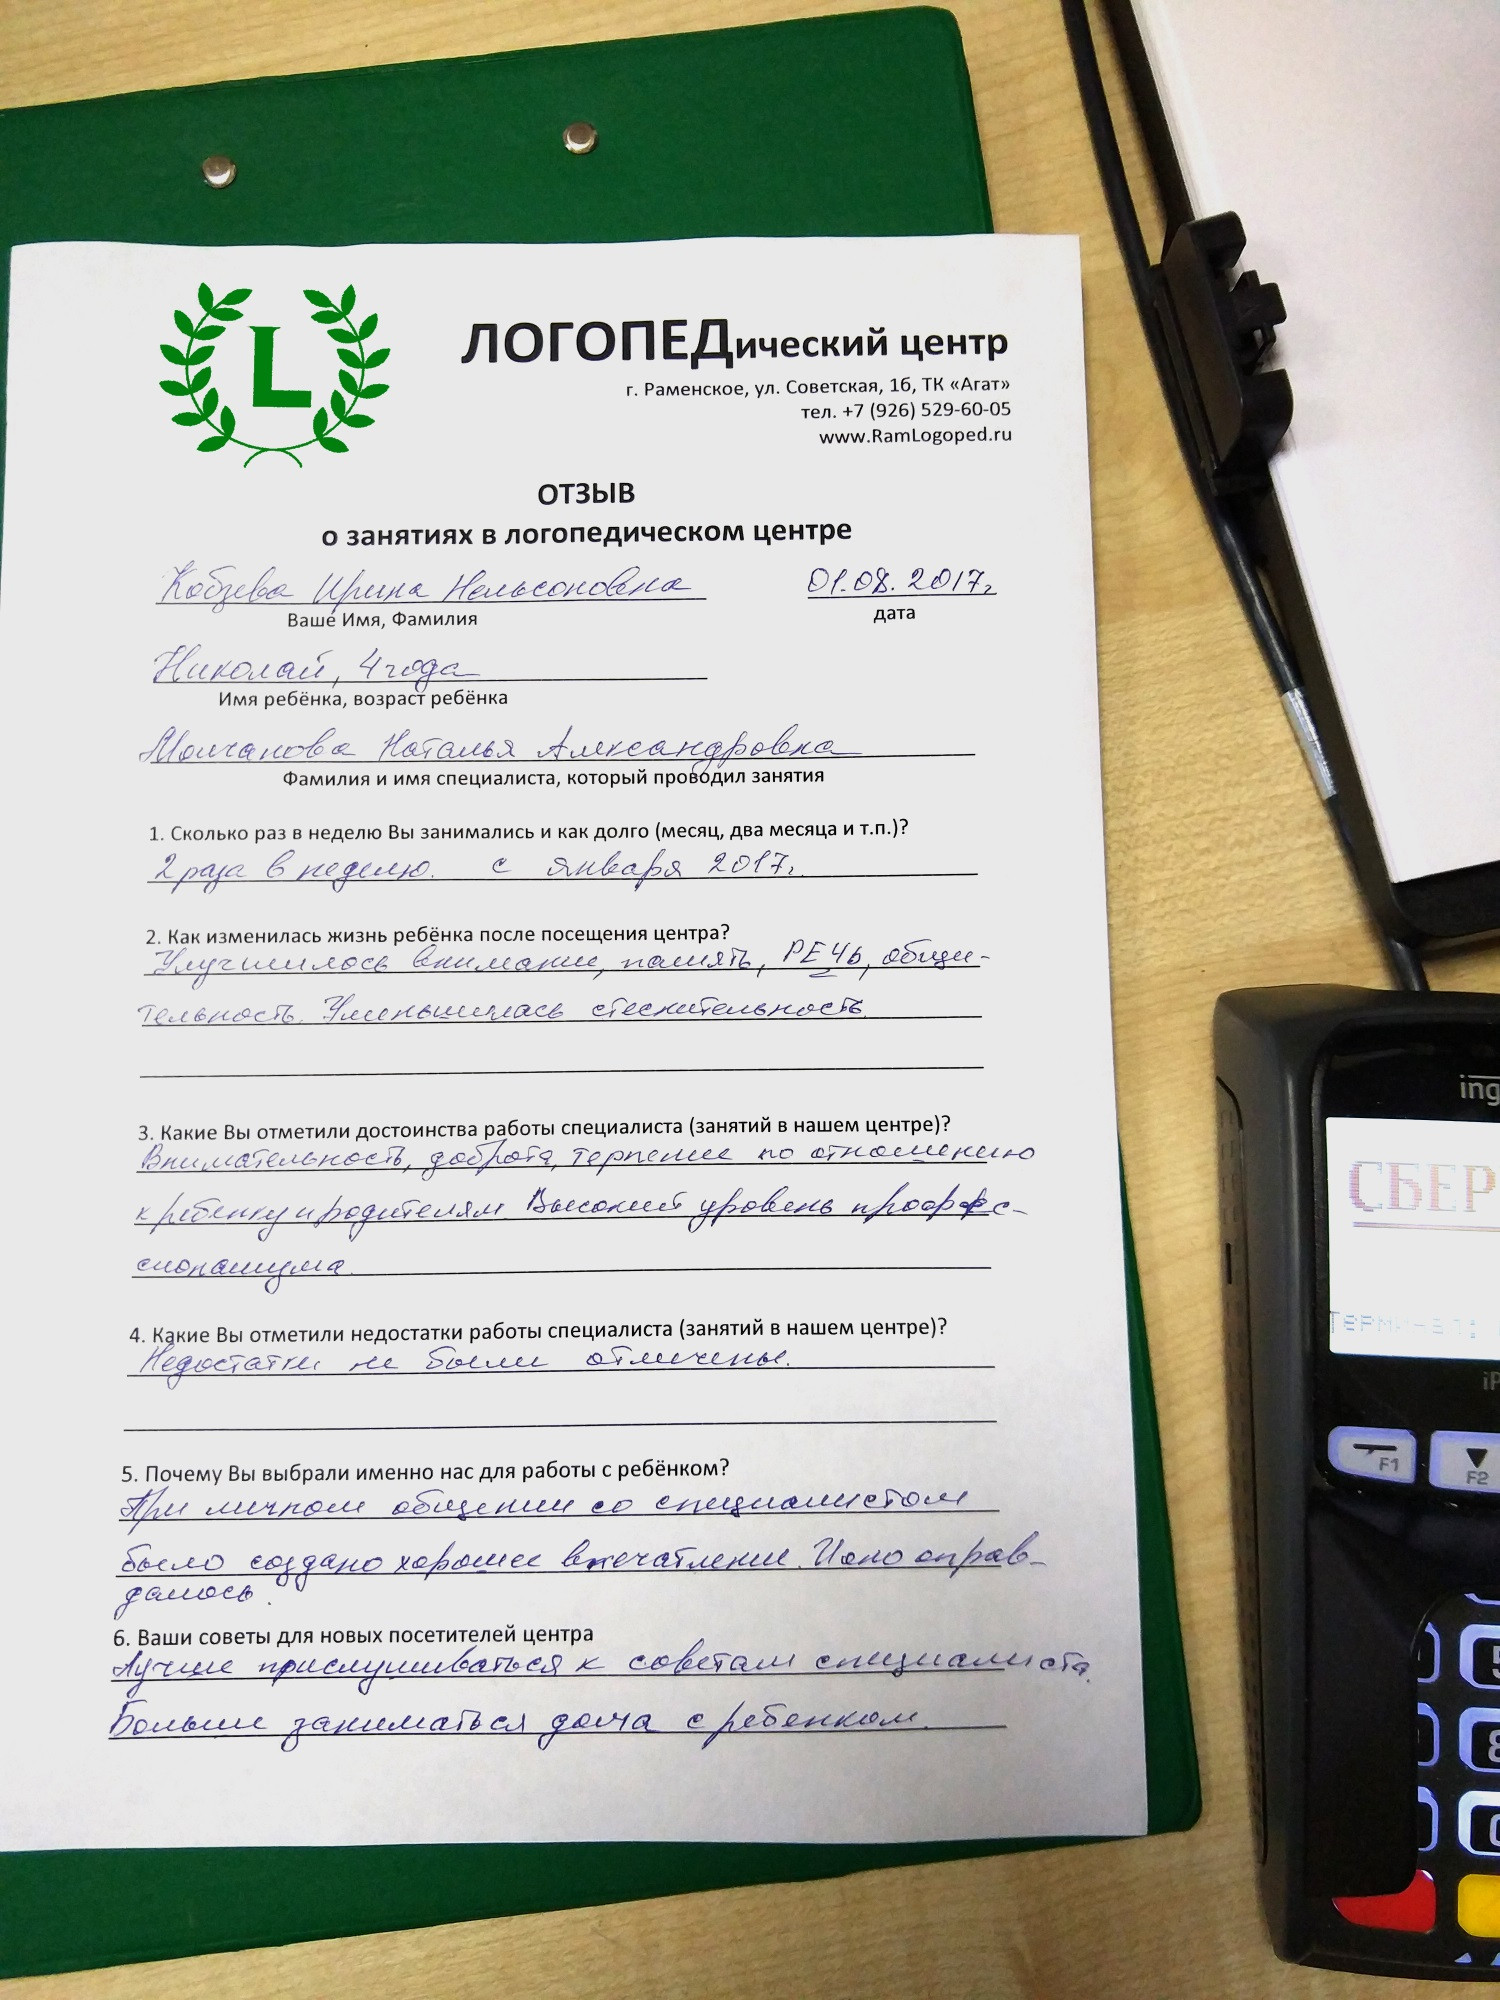 L
ЛОГОПЕДический центр
г. Раменское, ул. Советская, 1б, ТК «Агат»
тел. +7 (926) 529-60-05
www.RamLogoped.ru
ОТЗЫВ
о занятиях в логопедическом центре
Кобзева Ирина Нельсоновна 01.08.2017г.
Ваше Имя, Фамилия дата
Николай, 4 года
Имя ребёнка, возраст ребёнка
Молчанова Наталья Александровна
Фамилия и имя специалиста, который проводил занятия
1. Сколько раз в неделю Вы занимались и как долго (месяц, два месяца и т.п.)?
2 раза в неделю. с января 2017г.
2. Как изменилась жизнь ребёнка после посещения центра?
Улучшилось внимание, память, РЕЧЬ, общи-
тельность. Уменьшилась стеснительность.
3. Какие Вы отметили достоинства работы специалиста (занятий в нашем центре)?
Внимательность, доброта, терпение по отношению
к ребенку и родителям. Высокий уровень профес-
сионализма.
4. Какие Вы отметили недостатки работы специалиста (занятий в нашем центре)?
Недостатки не были отмечены.
5. Почему Вы выбрали именно нас для работы с ребёнком?
При личном общении со специалистом
было создано хорошее впечатление. И оно оправ-
далось.
6. Ваши советы для новых посетителей центра
Лучше прислушиваться к советам специалиста.
Больше заниматься дома с ребенком.
ing
СБЕР
Терминал:
iP
F1 F2
5
8
0